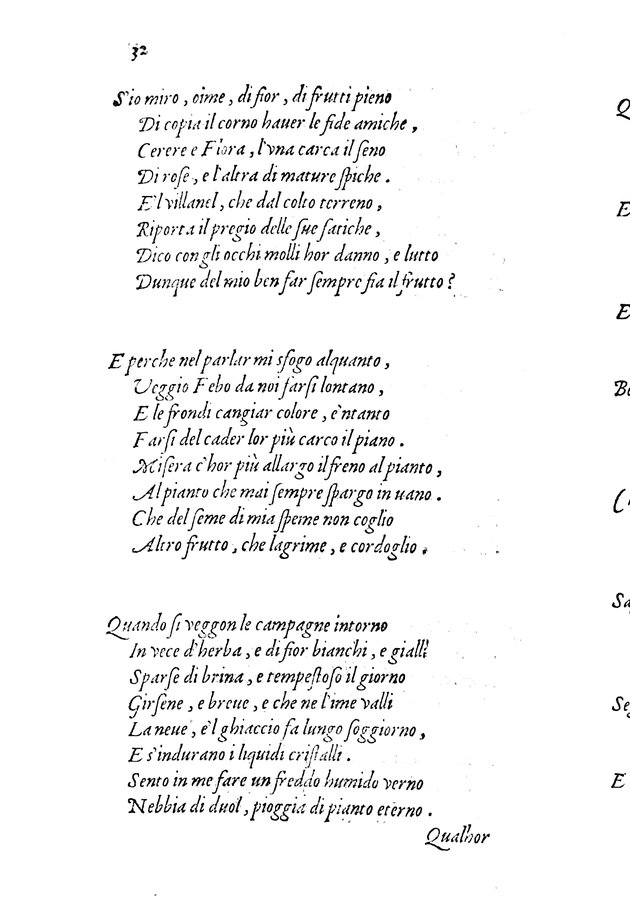 32
S'io miro, oime, di fior, di frutti pieno
Di copia il corno hauer le fide amiche,
Cerere e Flora, l'vna carca il ſeno
Di roſe, e l'altra di mature ſpiche.
E'l villanel, che dal colto terreno,
Riporta il pregio delle ſue fatiche,
Dico con gli occhi molli hor danno, e lutto
Dunque del mio ben far ſempre fia il frutto?
E perche nel parlar mi sfogo alquanto,
Veggio Febo da noi farſi lontano,
E le frondi cangiar colore, e'ntanto
Farſi del cader lor più carco il piano.
Miſera c'hor più allargo il freno al pianto,
Al pianto che mai ſempre ſpargo in uano.
Che del ſeme di mia ſpeme non coglio
Altro frutto, che lagrime, e cordoglio.
Quando ſi veggon le campagne intorno
In vece d'herba, e di fior bianchi, e gialli
Sparſe di brina, e tempeſtoſo il giorno
Girſene, e breue, e che ne l'ime valli
La neue, e'l ghiaccio fa lungo ſoggiorno,
E s'indurano i liquidi criſtalli.
Sento in me fare un freddo humido verno
Nebbia di duol, pioggia di pianto eterno.
Qualhor
Q
E
E
B
Sa
Se
E